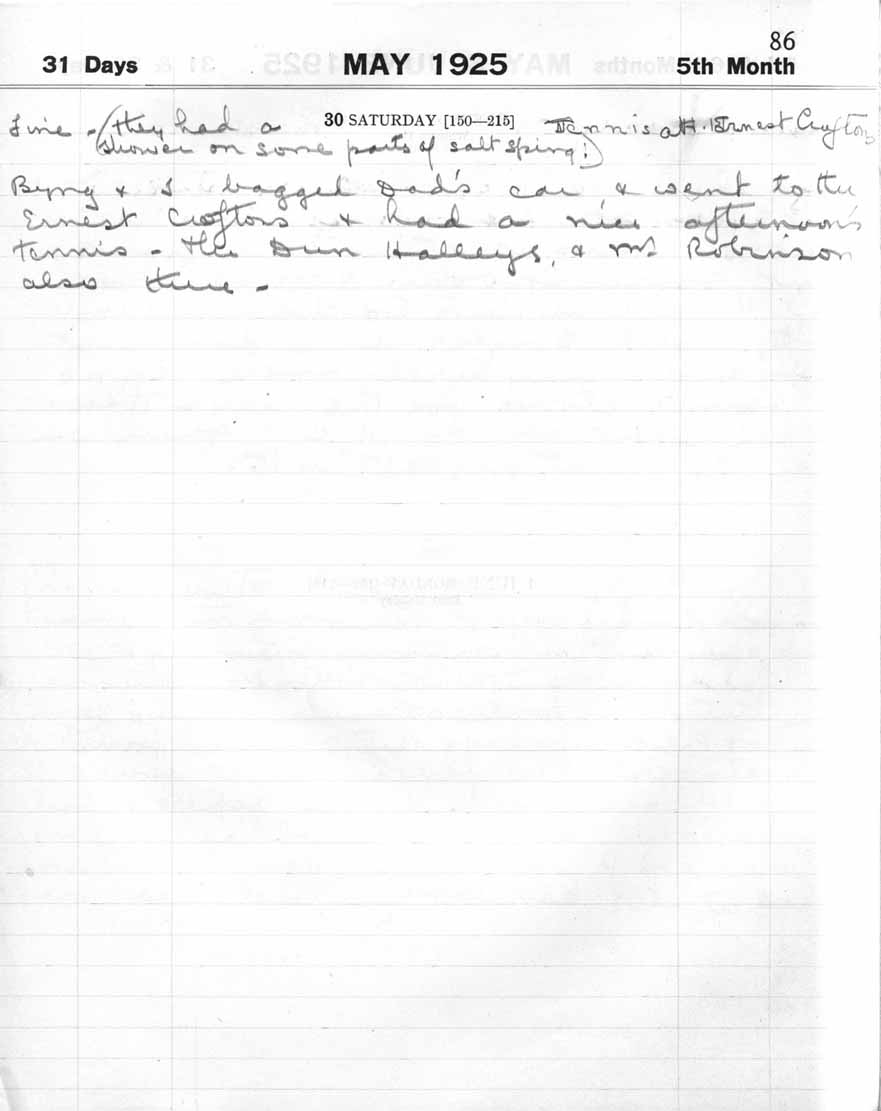 86
31 Days MAY 1925 5th Month
Fine - (they had a 30 SATURDAY [150—215] Tennis at Ernest Crofton
shower on some parts of salt spring!)
Byng & I bagged Dad's car, & went to the
Ernest Croftons & had a nice afternoon's
tennis - the Halleys, & Mr Robinson
also there -